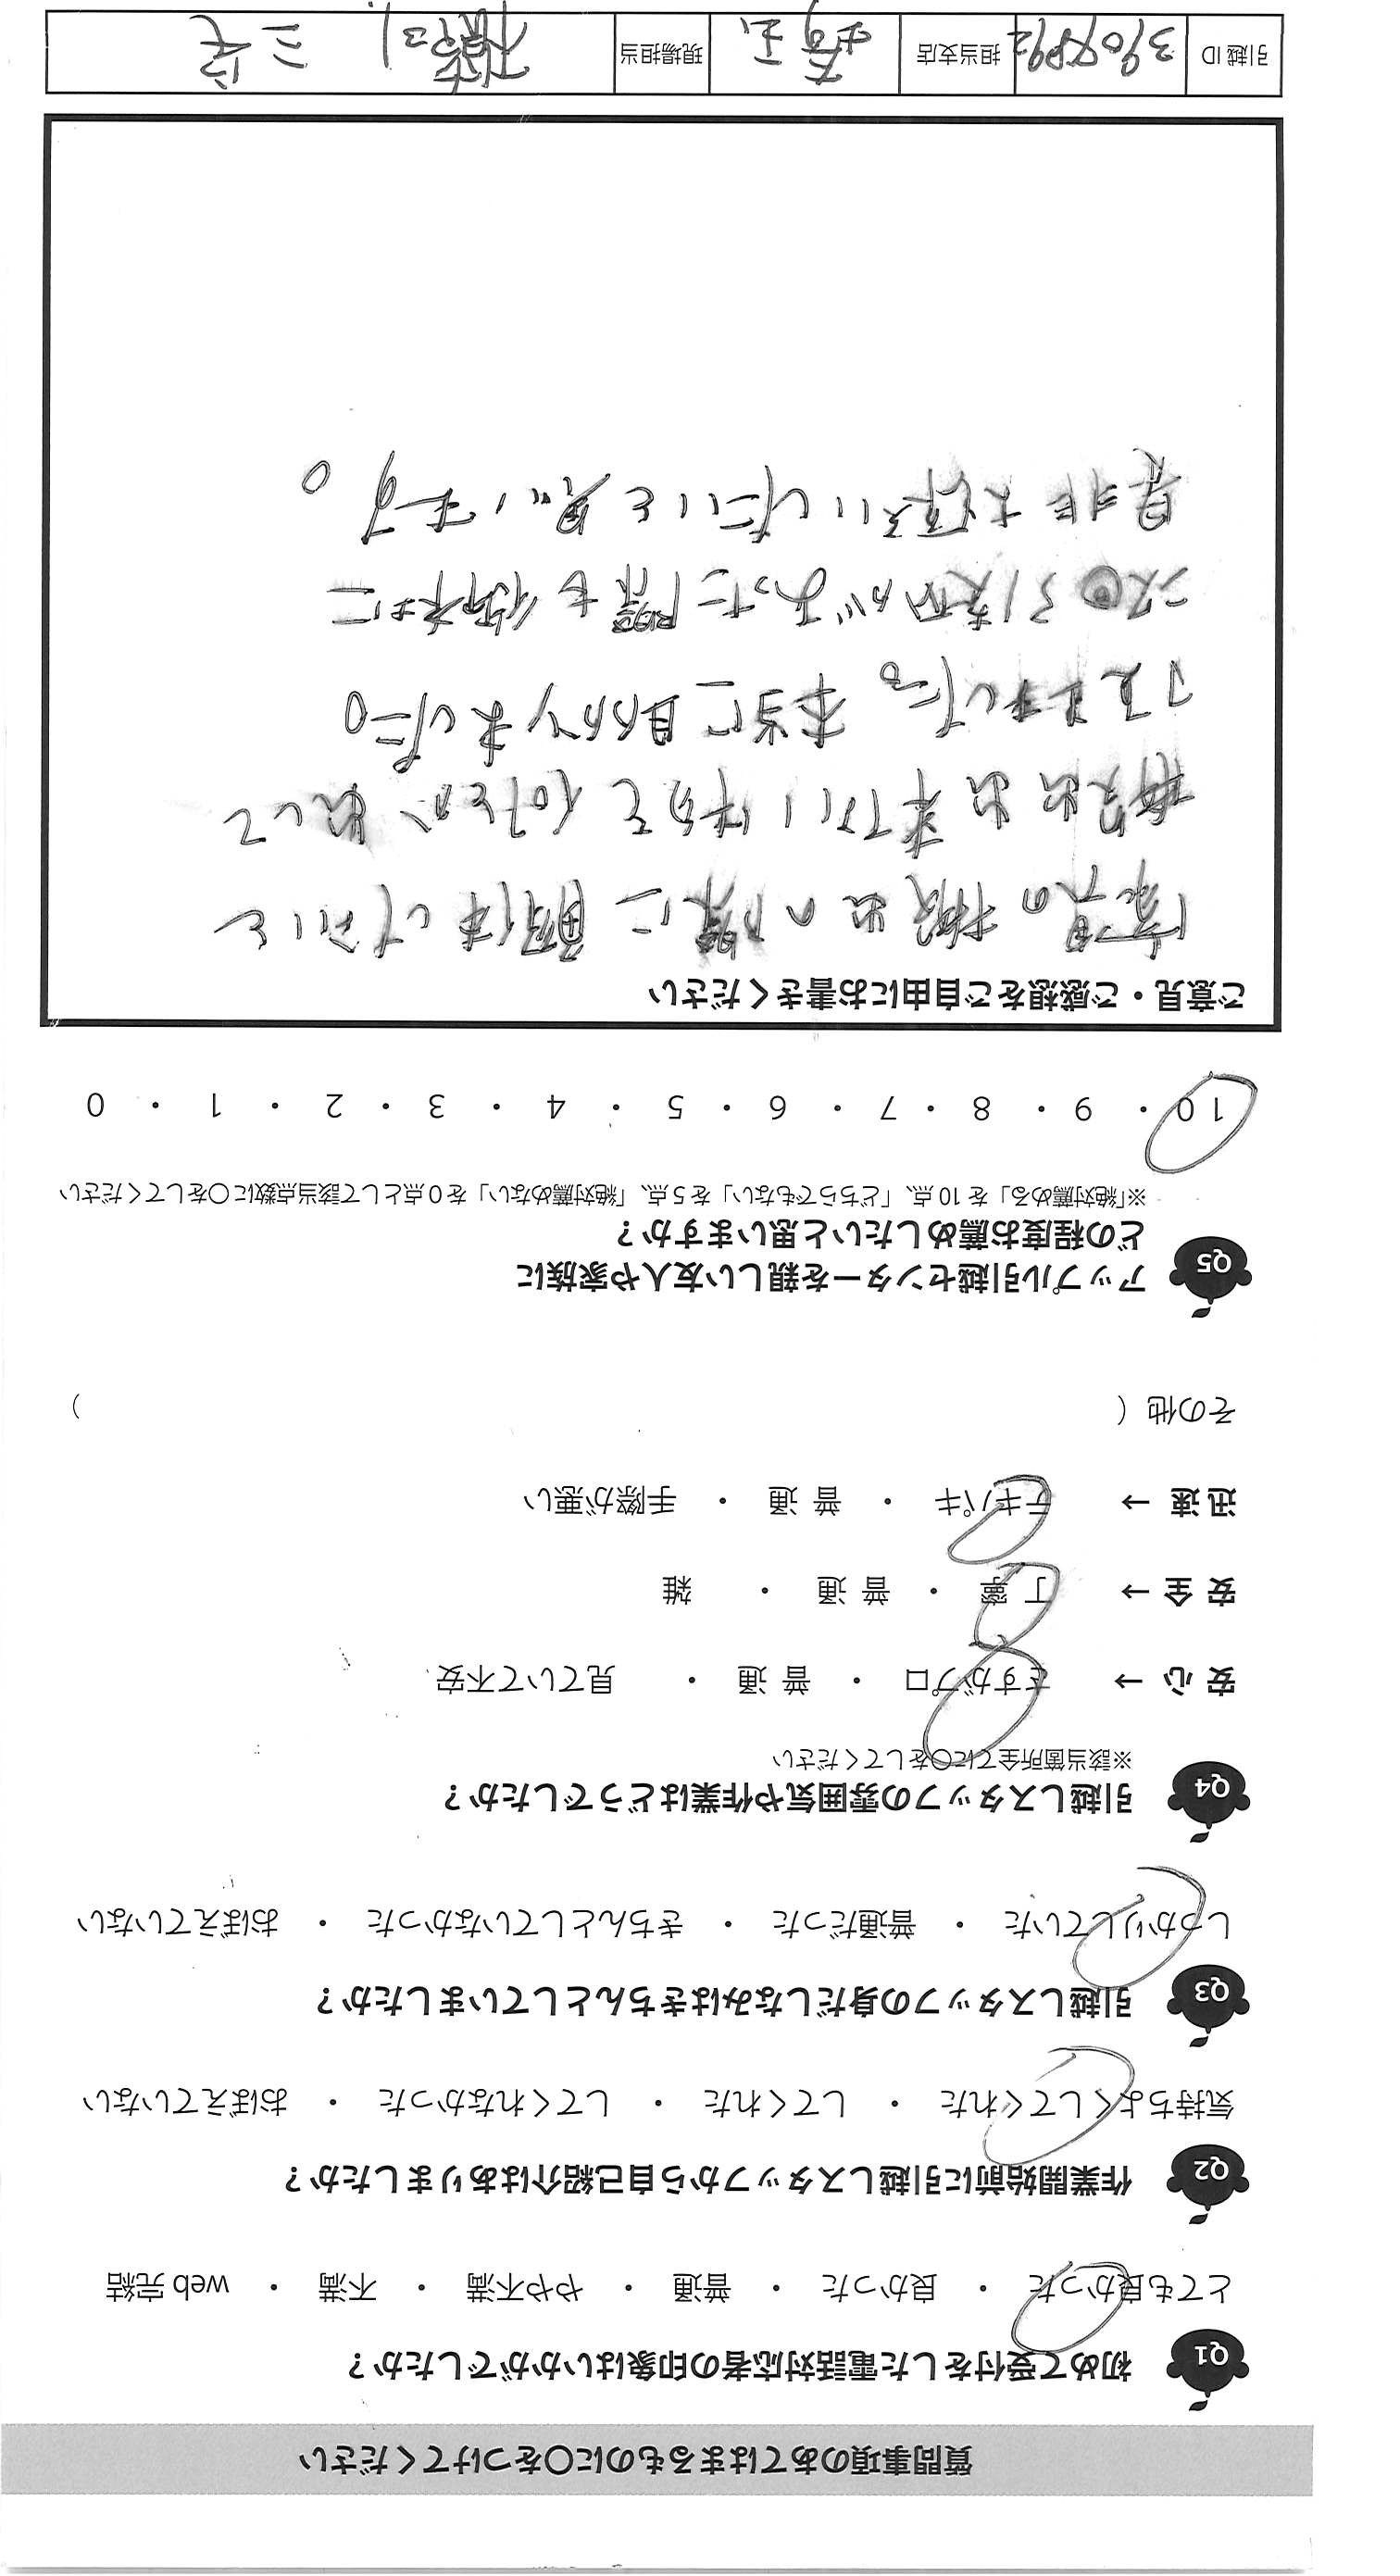 質問事項のあてはまるものに○をつけてください
Q1 初めて受付をした電話対応者の印象はいかがでしたか？
とても良かった ・ 良かった ・ 普通 ・ やや不満 ・ 不満 ・ web 完結
Q2 作業開始前に引越しスタッフから自己紹介はありましたか？
気持ちよくしてくれた ・ してくれた ・ してくれなかった ・ おぼえていない
Q3 引越しスタッフの身だしなみはきちんとしていましたか？
しっかりしていた ・ 普通だった ・ きちんとしていなかった ・ おぼえていない
Q4 引越しスタッフの雰囲気や作業はどうでしたか？
※該当箇所全てに○をしてください
安 心 → さすがプロ ・ 普 通 ・ 見ていて不安
安 全 → 丁 寧 ・ 普 通 ・ 雑
迅 速 → テキパキ ・ 普 通 ・ 手際が悪い
その他（ ）
Q5 アップル引越センターを親しい友人や家族に
どの程度お薦めしたいと思いますか？
※「絶対薦める」を 10 点、「どちらでもない」を 5 点、「絶対薦めない」を 0 点として該当点数に○をしてください
10 ・ 9 ・ 8 ・ 7 ・ 6 ・ 5 ・ 4 ・ 3 ・ 2 ・ 1 ・ 0
ご意見・ご感想をご自由にお書きください
家具の搬出の際に解体しないと
搬出出来ない 何とか出して
下さりました。本当に助かりました。
次回引越があった際も御社に
是非お願いしたいと思います。
引越 ID 担当支店 埼玉 現場担当 三宅